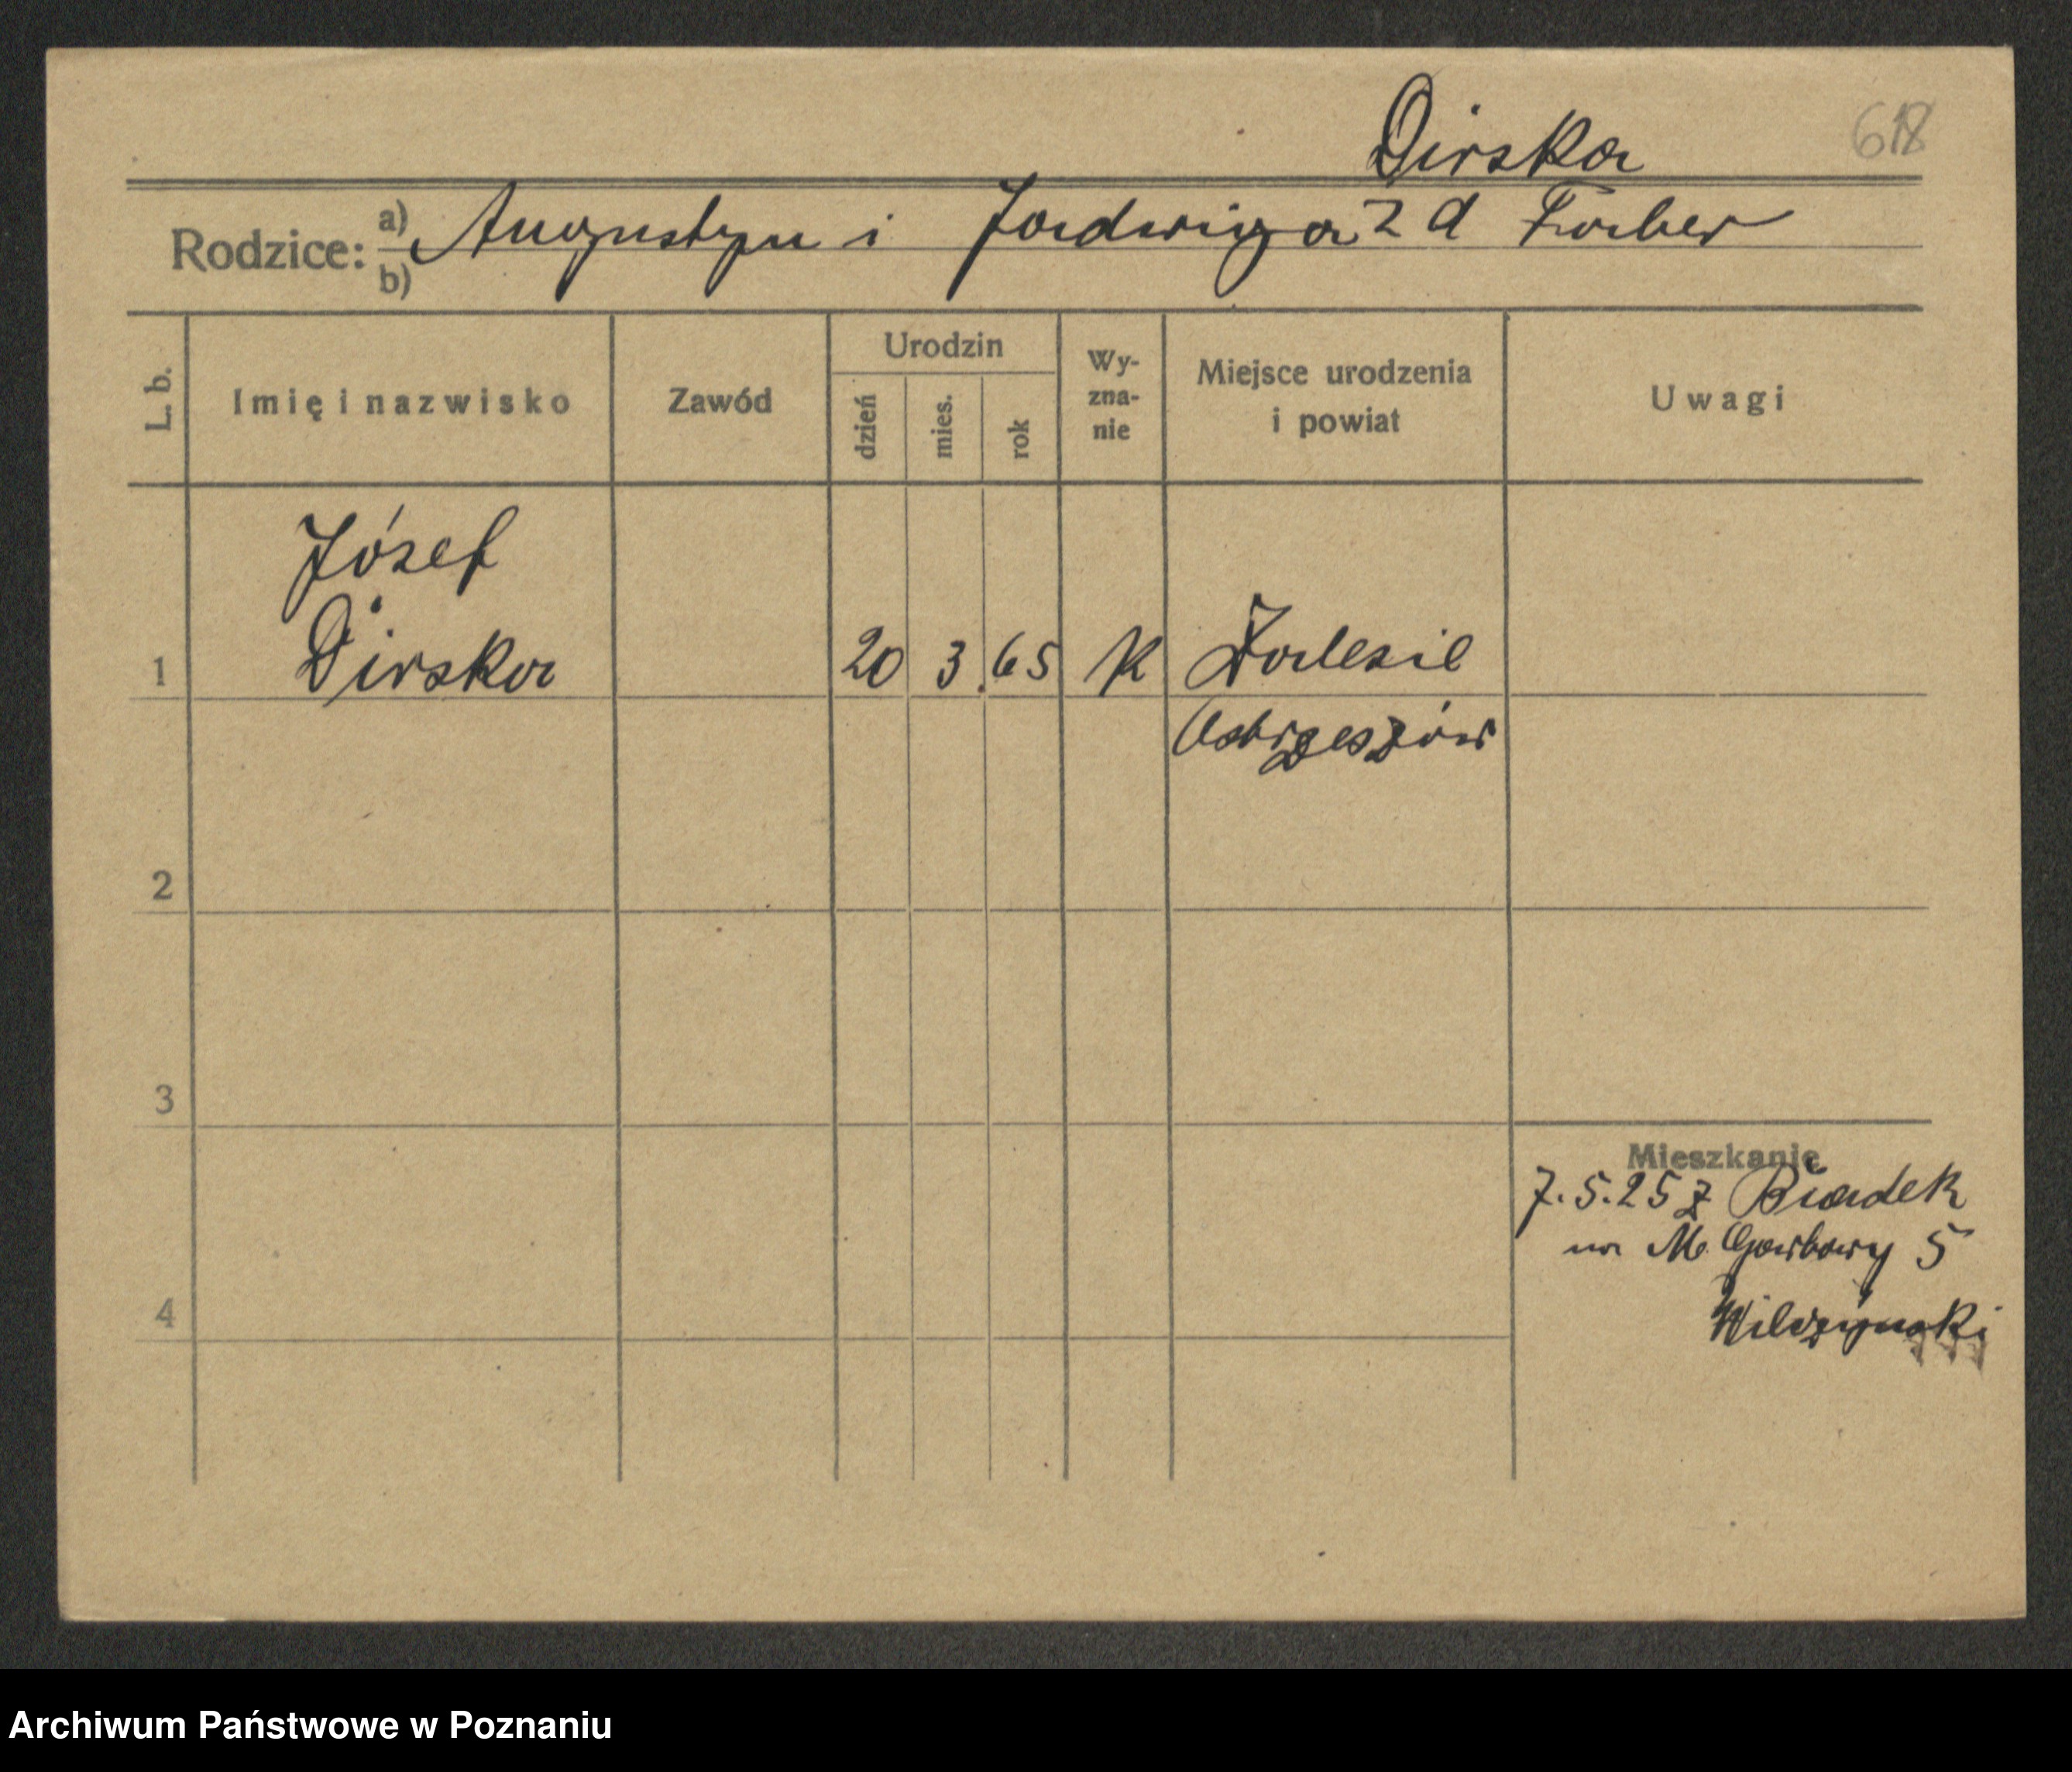 Dirska
618
Rodzice: a) Augustyn i Jadwiga z d Farber
b)
L. b.
Imię i nazwisko
Zawód
Urodzin
dzień
mies.
rok
Wy-
zna-
nie
Miejsce urodzenia
i powiat
Uwagi
Józef
1 Dirska 20 3.65 K Zalesie
Ostrzeszów
2
3
Mieszkanie
7.5.25 z Biadek
na M. Garbary 5
4
Wilczyński
Archiwum Państwowe w Poznaniu